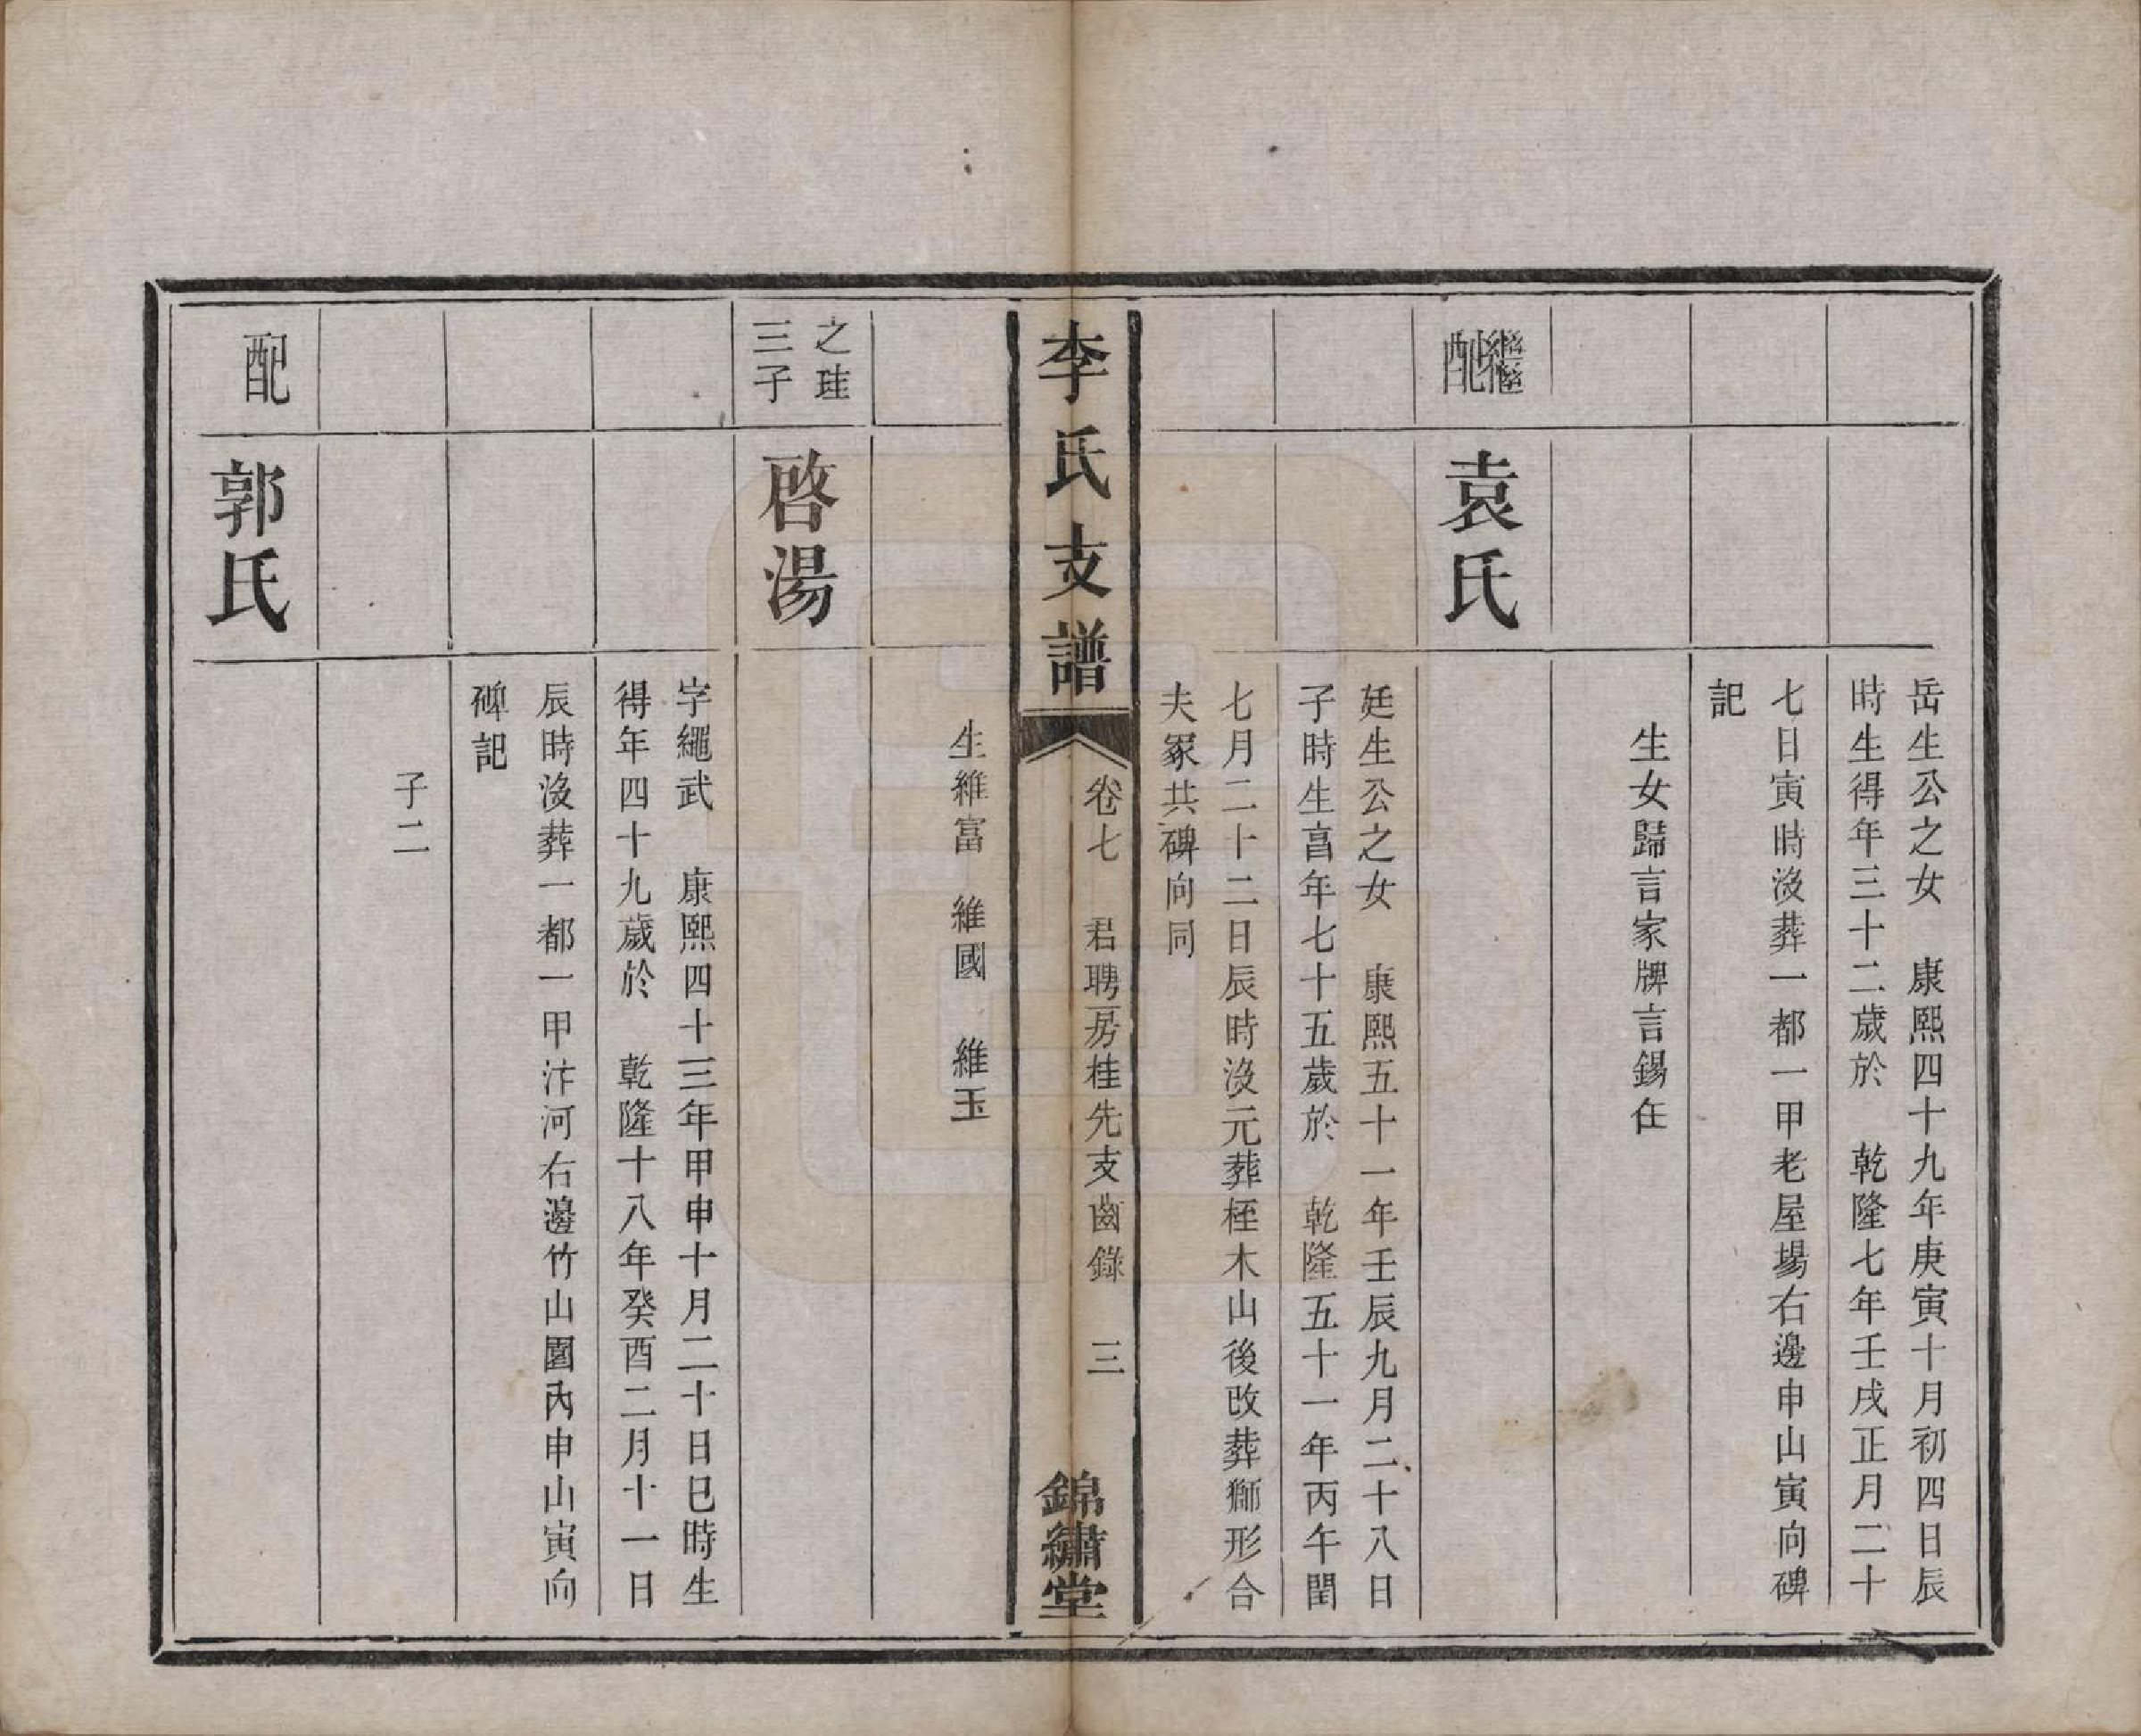 岳生公之女　康熙四十九年庚寅十月初四日辰
時生得年三十二歲於　乾隆七年壬戌正月二十
七日寅時沒葬一都一甲老屋場右邊申山寅向碑
記
生女歸言家牌言錫任
繼配
袁氏
廷生公之女　康熙五十一年壬辰九月二十八日
子時生𠷠年七十五歲於　乾隆五十一年丙午閏
七月二十二日辰時沒元葬桎木山後改葬獅形合
夫冢共碑向同
李氏支譜
卷七　君聘房桂先支齒錄　三
錦繡堂
生維富　維國　維玉
之珪三子
啓湯
字繩武　康熙四十三年甲申十月二十日巳時生
得年四十九歲於　乾隆十八年癸酉二月十一日
辰時沒葬一都一甲汴河右邊竹山園內申山寅向
碑記
子二
配
郭氏